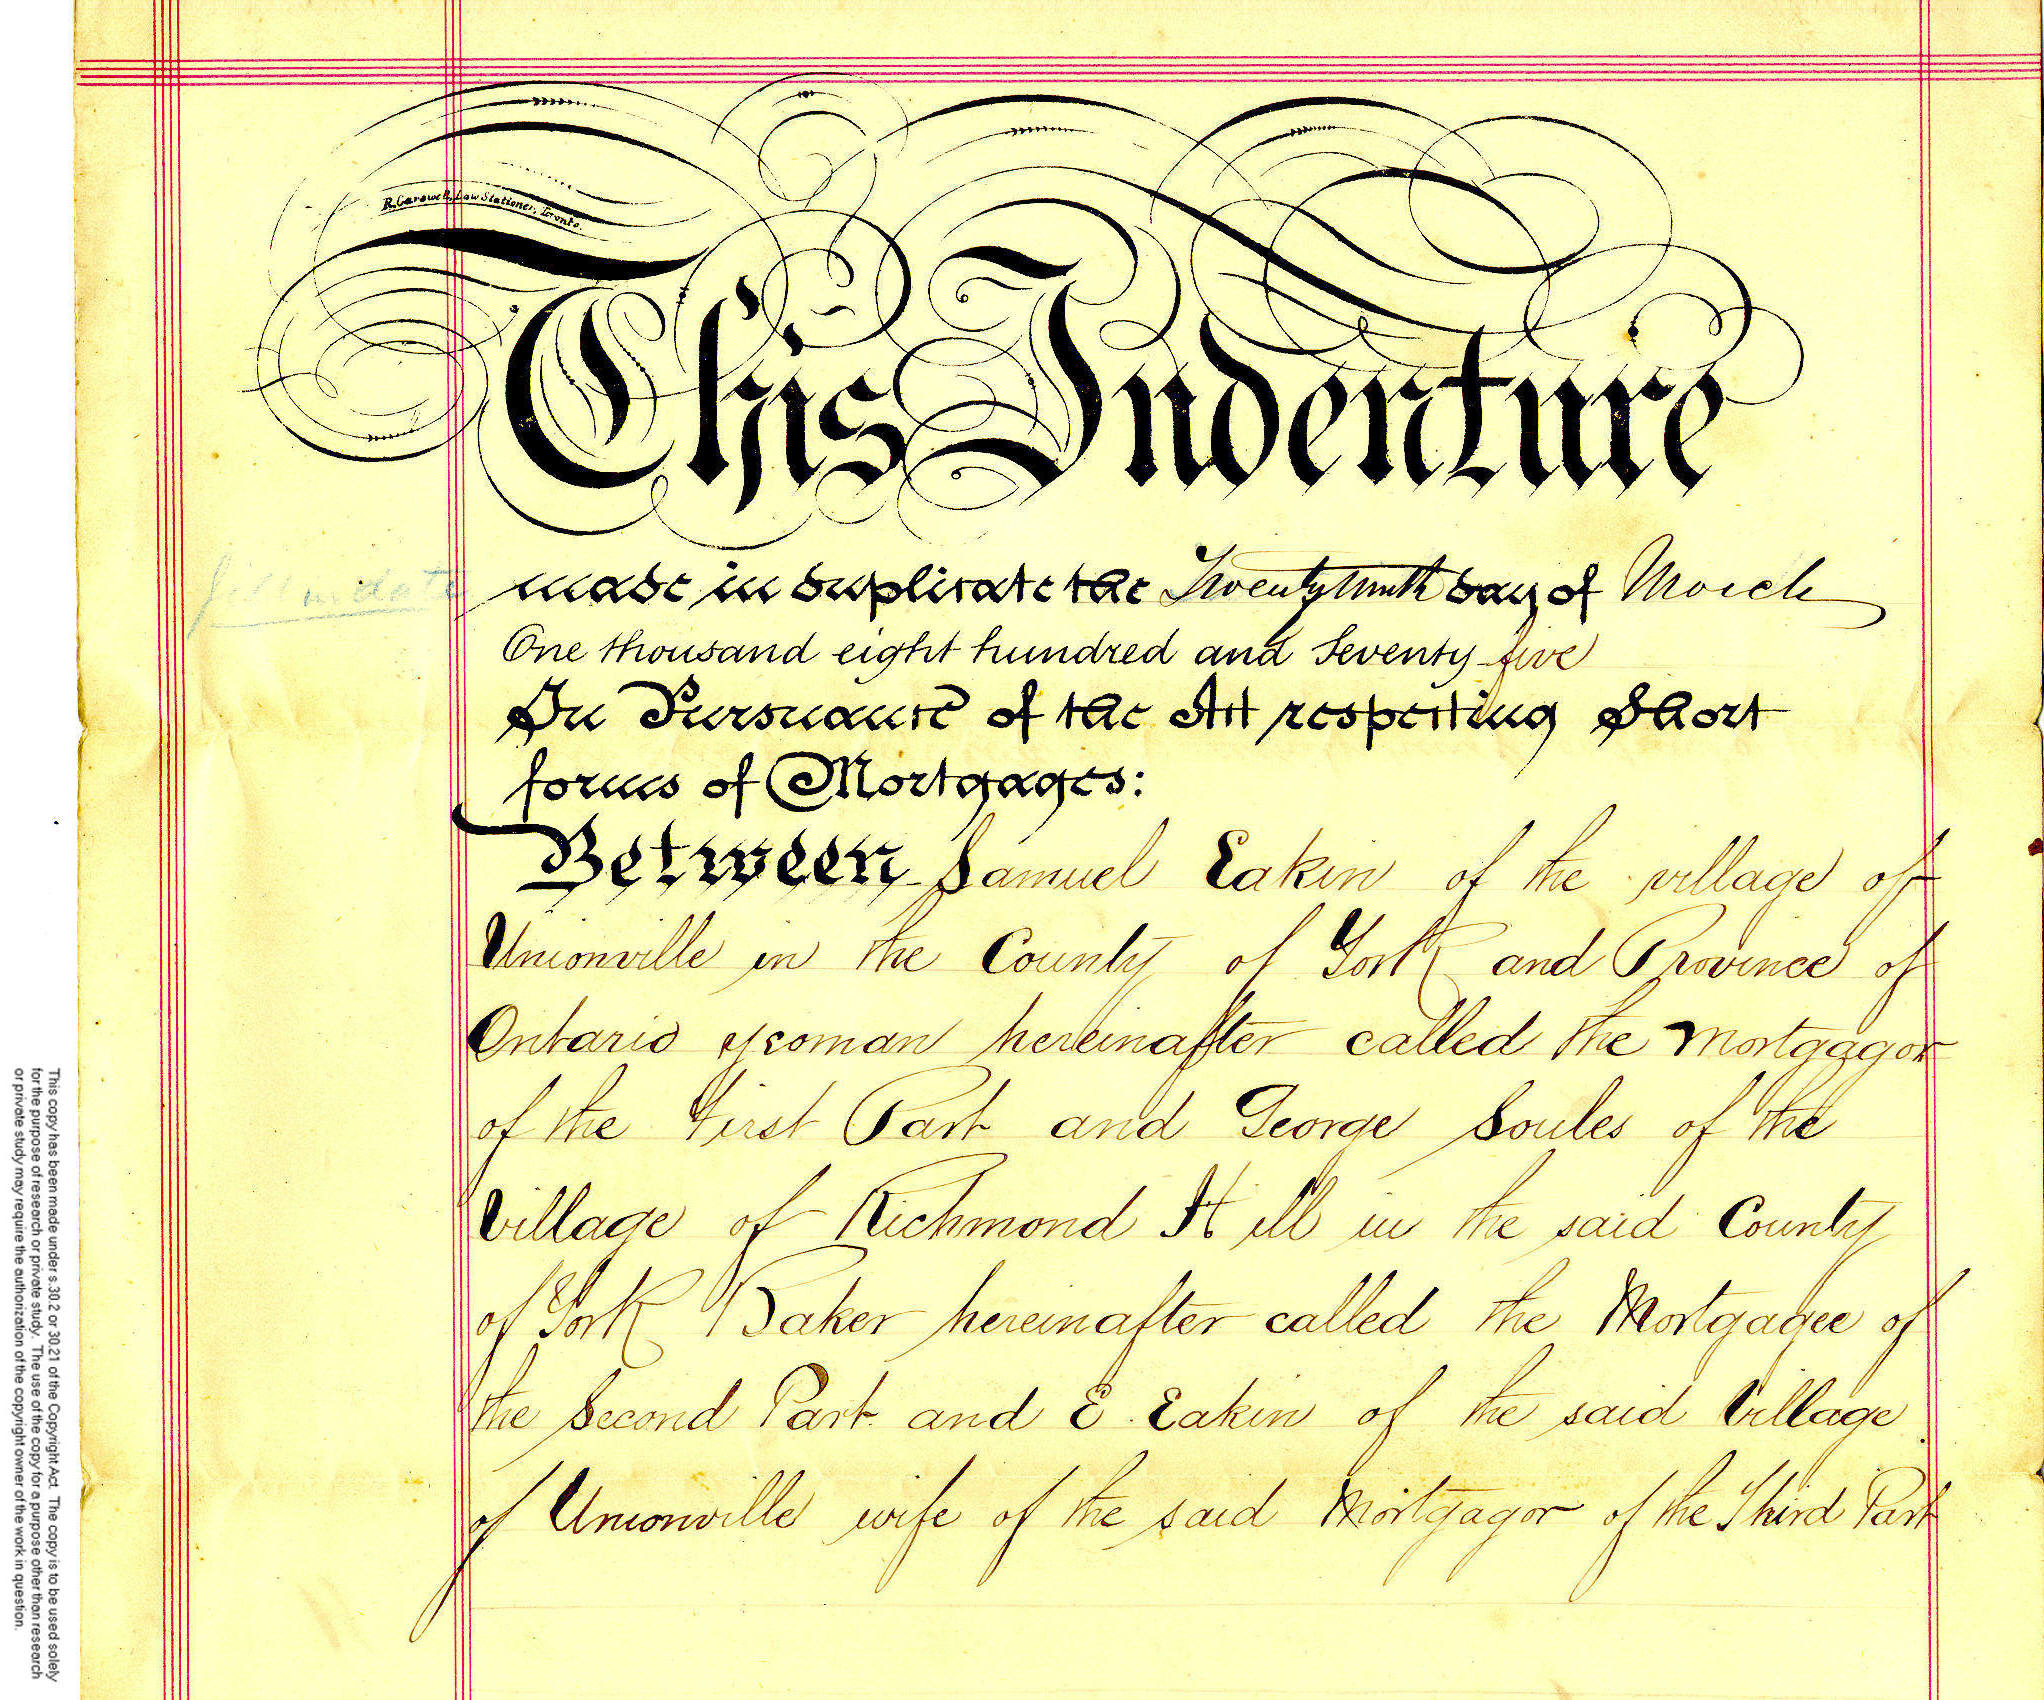 R. Carswell, Law Stationer, Toronto.
This Indenture
fill in date
made in duplicate the Twenty ninth day of March
One thousand eight hundred and Seventy five
In Pursuance of the Act respecting Short
forms of Mortgages:
Between Samuel Eakin of the village of
Unionville in the County of York and Province of
Ontario yeoman hereinafter called the Mortgagor
of the First Part and George Soules of the
Village of Richmond Hill in the said County
of York Baker hereinafter called the Mortgagee of
the Second Part and E. Eakin of the said Village
of Unionville wife of the said Mortgagor of the Third Part
This copy has been made under s.30.2 or 30.21 of the Copyright Act. The copy is to be used solely
for the purpose of research or private study. The use of the copy for a purpose other than research
or private study may require the authorization of the copyright owner of the work in question.